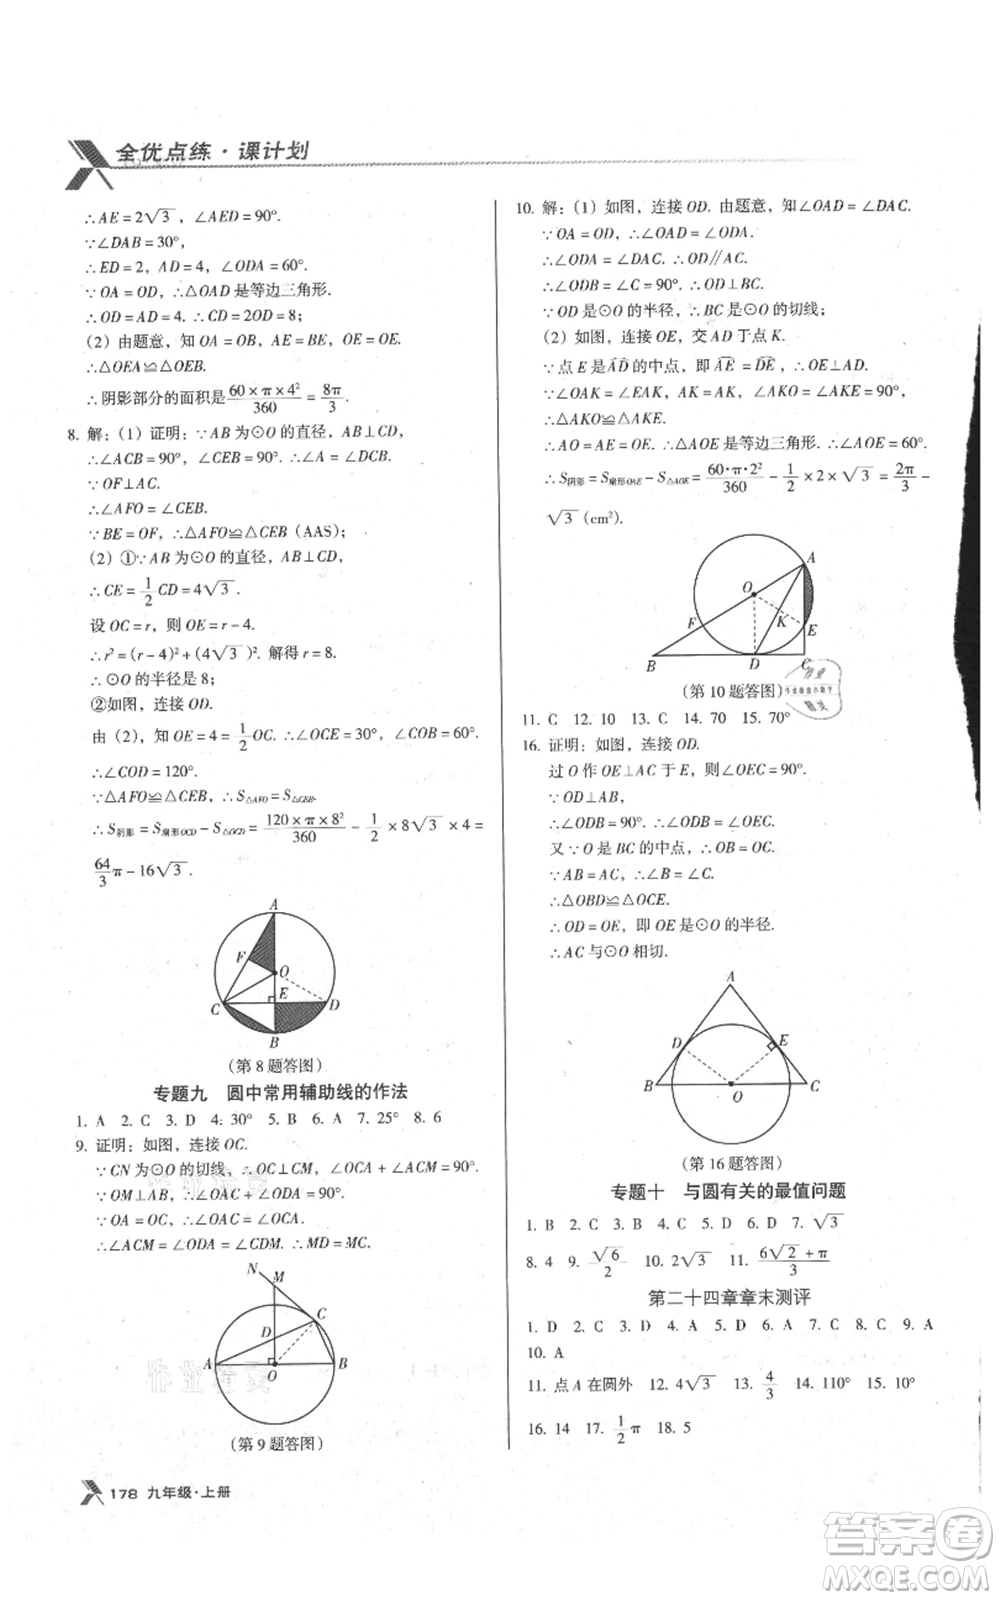 全优点练·课计划
∴AE=2√3，∠AED=90°.
∵∠DAB=30°，
∴ED=2，AD=4，∠ODA=60°.
∵OA=OD，∴△OAD是等边三角形.
∴OD=AD=4. ∴CD=2OD=8；
(2) 由题意，知OA=OB，AE=BE，OE=OE.
∴△OEA≌△OEB.
∴阴影部分的面积是60×π×4²/360=8π/3.
8. 解：(1) 证明：∵AB为⊙O的直径，AB⊥CD，
∴∠ACB=90°，∠CEB=90°. ∴∠A=∠DCB.
∵OF⊥AC.
∴∠AFO=∠CEB.
∵BE=OF，∴△AFO≌△CEB (AAS)；
(2) ①∵AB为⊙O的直径，AB⊥CD，
∴CE=1/2CD=4√3.
设OC=r，则OE=r-4.
∴r²=(r-4)²+(4√3)². 解得r=8.
∴⊙O的半径是8；
②如图，连接OD.
由(2)，知OE=4=1/2OC. ∴∠OCE=30°，∠COB=60°.
∴∠COD=120°.
∵△AFO≌△CEB，∴S△AFO=S△CEB.
∴S阴影=S扇形OCD-S△OCD=120×π×8²/360-1/2×8√3×4=
64/3π-16√3.
A
F
O
C
E
D
B
(第8题答图)
专题九 圆中常用辅助线的作法
1. A 2. C 3. D 4. 30° 5. B 6. A 7. 25° 8. 6
9. 证明：如图，连接OC.
∵CN为⊙O的切线，∴OC⊥CM，∠OCA+∠ACM=90°.
∵OM⊥AB，∴∠OAC+∠ODA=90°.
∵OA=OC，∴∠OAC=∠OCA.
∴∠ACM=∠ODA=∠CDM. ∴MD=MC.
N
M
C
D
A
O
B
(第9题答图)
178 九年级·上册
10. 解：(1) 如图，连接OD. 由题意，知∠OAD=∠DAC.
∵OA=OD，∴∠OAD=∠ODA.
∴∠ODA=∠DAC. ∴OD∥AC.
∴∠ODB=∠C=90°. ∴OD⊥BC.
∵OD是⊙O的半径，∴BC是⊙O的切线；
(2) 如图，连接OE，交AD于点K.
∵点E是AD的中点，即AE=DE，∴OE⊥AD.
∵∠OAK=∠EAK，AK=AK，∠AKO=∠AKE=90°，
∴△AKO≌△AKE.
∴AO=AE=OE. ∴△AOE是等边三角形. ∴∠AOE=60°.
∴S阴影=S扇形OAE-S△AOE=60·π·2²/360-1/2×2×√3=2π/3-
√3(cm²).
A
O
F
K
E
B
D
C
(第10题答图)
11. C 12. 10 13. C 14. 70 15. 70°
16. 证明：如图，连接OD.
过O作OE⊥AC于E，则∠OEC=90°.
∵OD⊥AB，
∴∠ODB=90°. ∴∠ODB=∠OEC.
又∵O是BC的中点，∴OB=OC.
∵AB=AC，∴∠B=∠C.
∴△OBD≌△OCE.
∴OD=OE，即OE是⊙O的半径.
∴AC与⊙O相切.
A
D
E
B
O
C
(第16题答图)
专题十 与圆有关的最值问题
1. B 2. C 3. B 4. C 5. D 6. D 7. √3
8. 4 9. √6/2 10. 2√3 11. (6√2+π)/3
第二十四章章末测评
1. D 2. C 3. D 4. A 5. B 6. D 7. C 8. C 9. A
10. A
11. 点A在圆外 12. 4√3 13. 4/3 14. 110° 15. 10°
16. 14 17. 1/2π 18. 5
答案卷
MXQE.COM